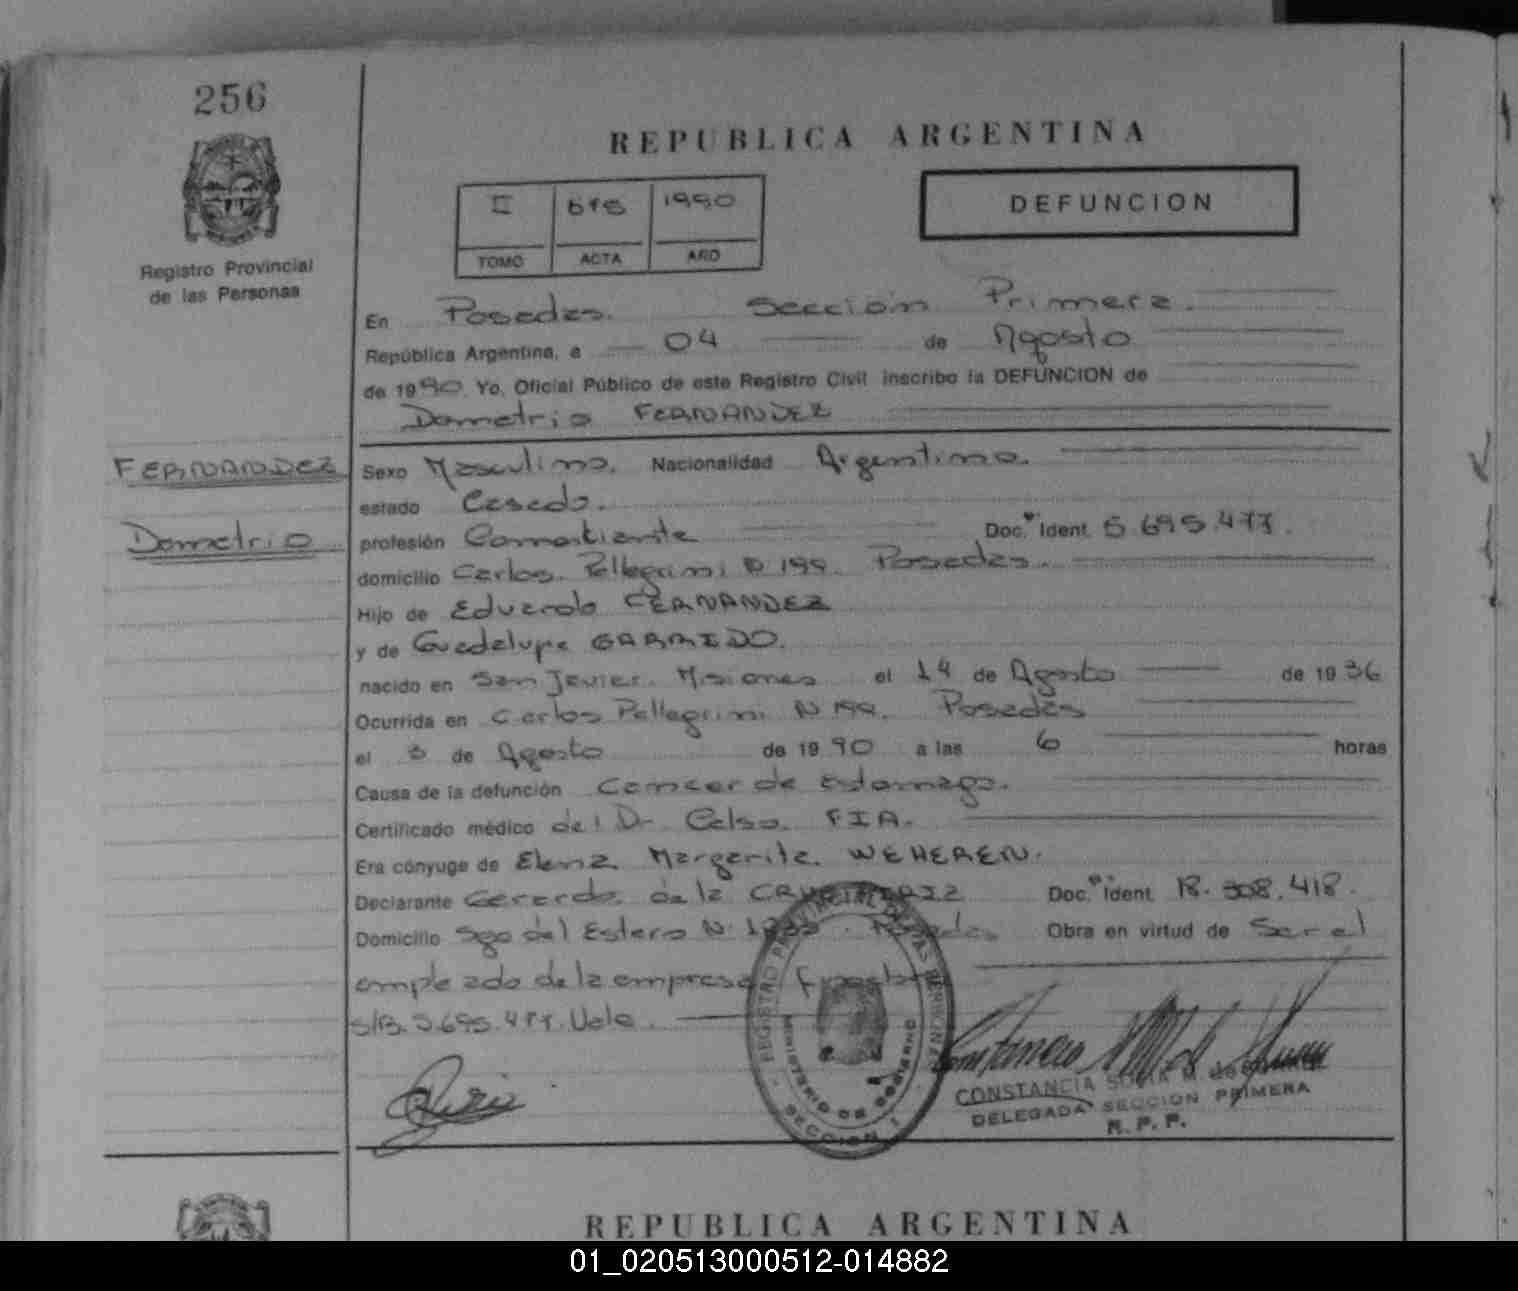 256
Registro Provincial
de las Personas
REPUBLICA ARGENTINA
II 1990
TOMO ACTA AÑO
DEFUNCION
En Posadas. Sección Primera.
República Argentina, a 04 de Agosto
de 1990. Yo, Oficial Público de este Registro Civil inscribo la DEFUNCION de
Dometrio FERNANDEZ
FERNANDEZ
Dometrio
Sexo Masculino. Nacionalidad Argentina.
estado Casado.
profesión Comerciante Doc. Ident. 5.695.477.
domicilio Carlos Pellegrini N 199. Posadas.
Hijo de Eduardo FERNANDEZ
y de Guadalupe GARRIDO.
nacido en San Javier. Misiones el 14 de Agosto de 1936
Ocurrida en Carlos Pellegrini N 199. Posadas
el 3 de Agosto de 1990 a las 6 horas
Causa de la defunción Cancer de Estomago.
Certificado médico del Dr Celso FIA.
Era cónyuge de Elena Margarita WEHEREN.
Declarante Gerardo de la CRUZ Doc. Ident. 18.308.418.
Domicilio Sgo del Estero N Posadas Obra en virtud de Ser el
empleado de la empresa
S/B. 5.695.477. Vale.
REGISTRO PROVINCIAL DE LAS PERSONAS
MINISTERIO DE GOBIERNO
SECCION 1
CONSTANCIA M. de
DELEGADA SECCION PRIMERA
R. P. P.
REPUBLICA ARGENTINA
01_020513000512-014882